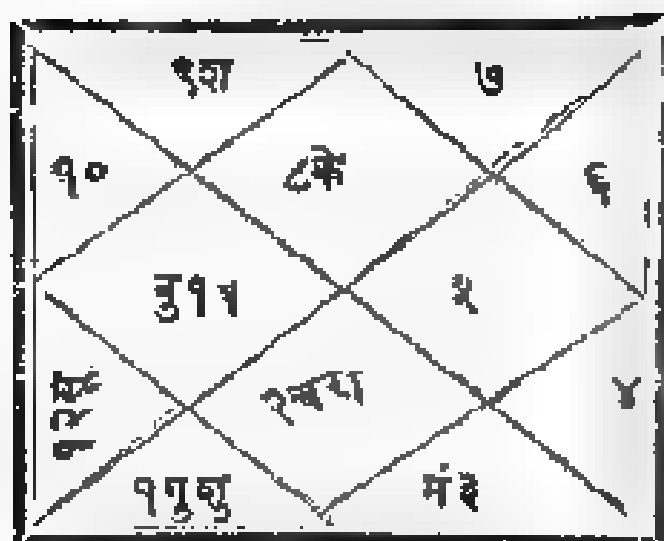 ९श
७
१०
८के
६
बु११
५
१२सू
२चरा
४
१गुशु
मं३